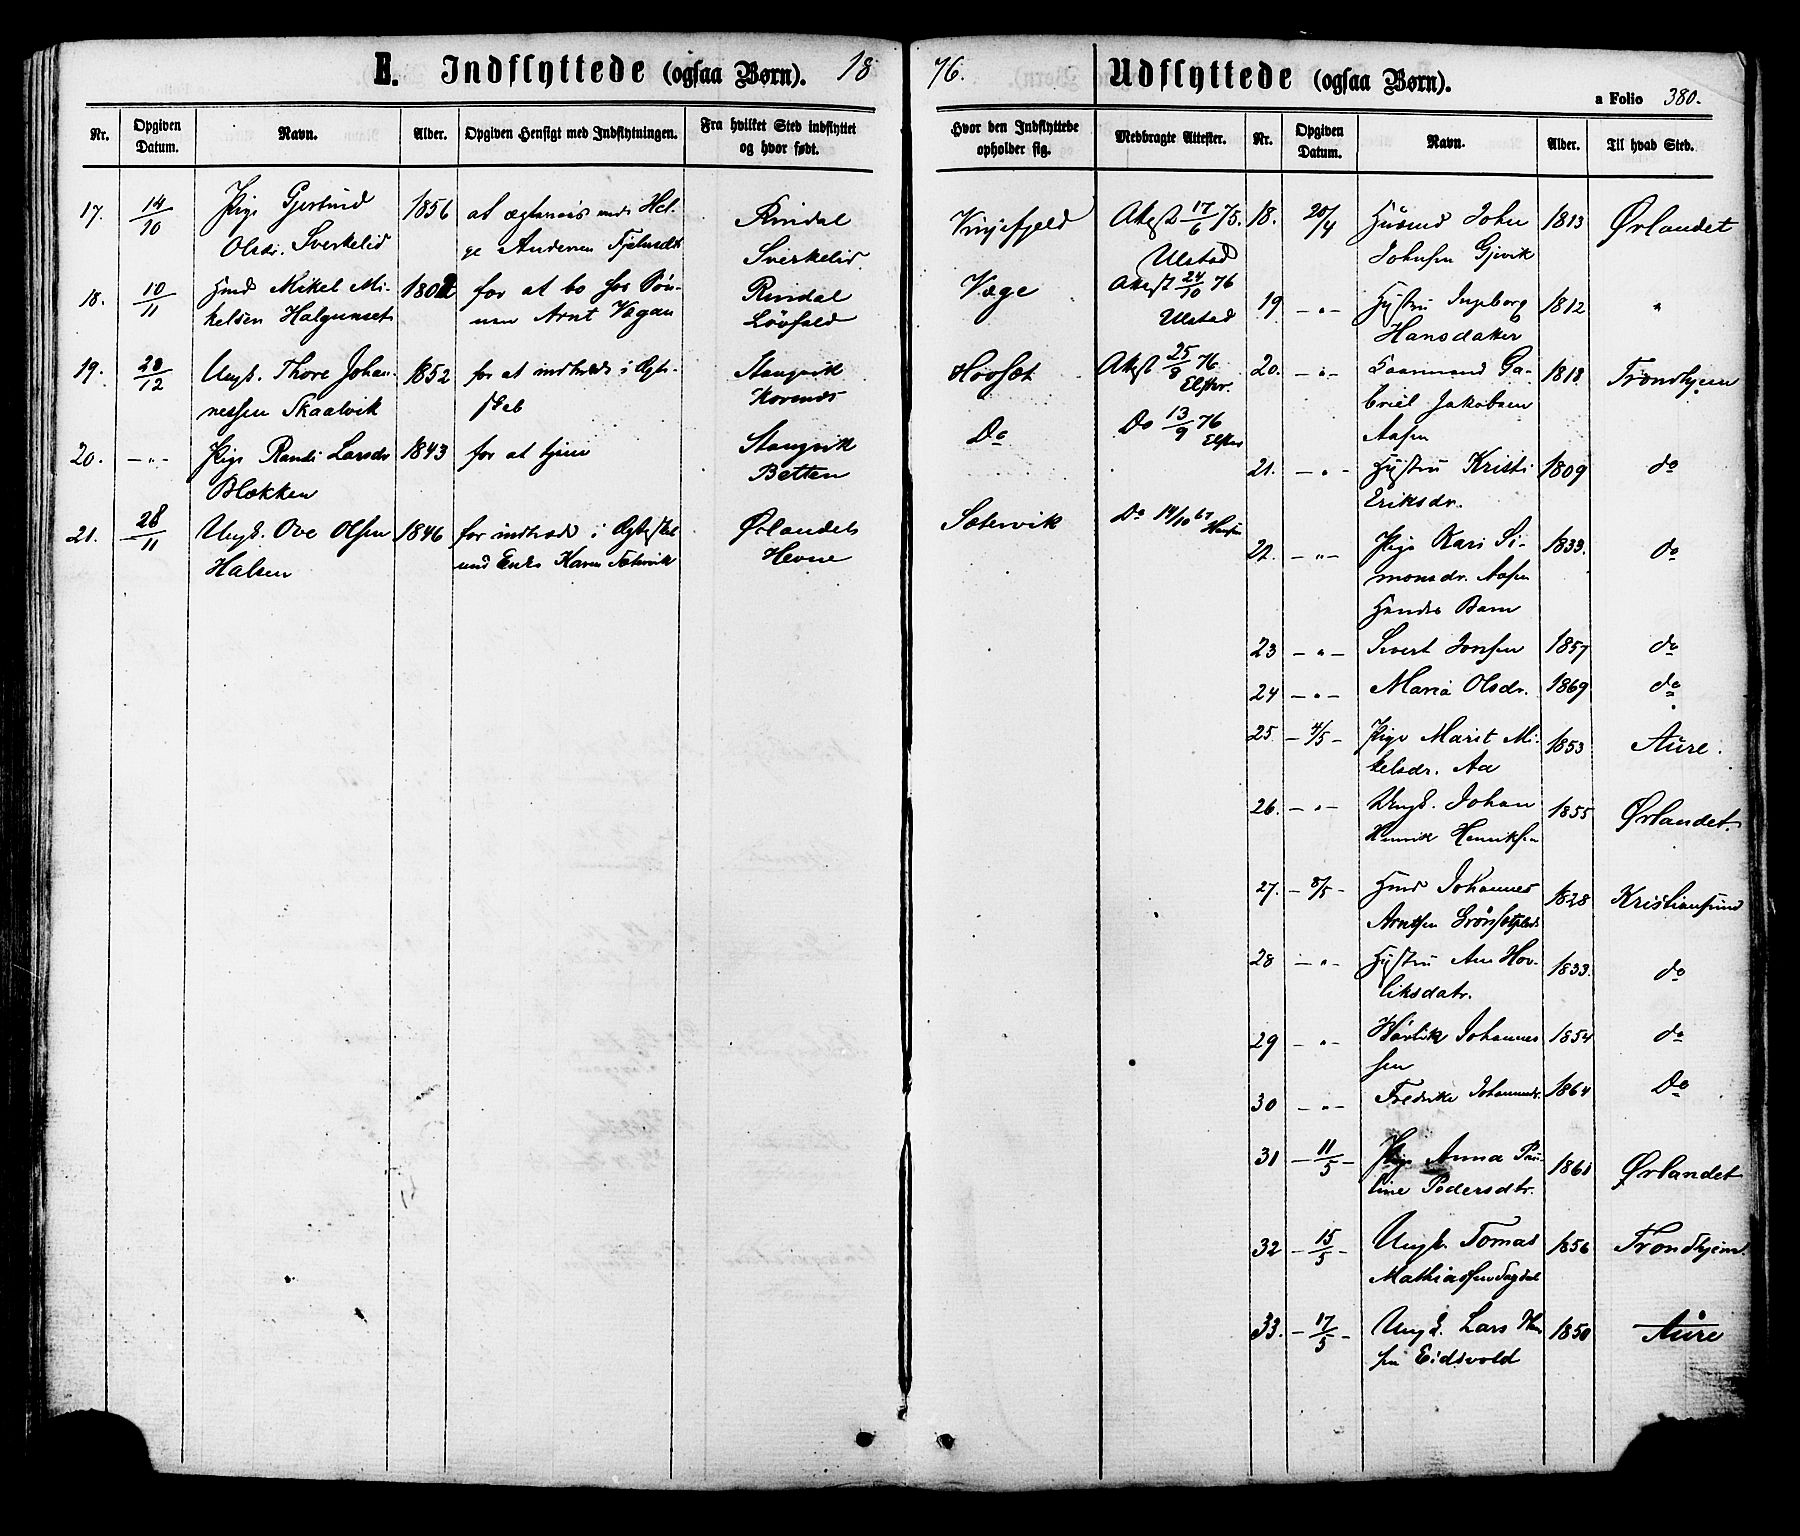 E. Indflyttede (ogsaa Børn). 18
Nr.
Opgiven Datum.
Navn.
Alder.
Opgiven Hensigt med Indflytningen.
Fra hvilket Sted indflyttet og hvor født.
17. 14/10 Pige Gjertrud 1856 at ægtevies med Hel- Rindal
Olsdr. Sverkelid ge Andersen Sverkelid.
18. 10/11 Mikel Mi- for at bo hos Søn- Rindal
kelsen Halgunset nen Arnt Vaagan Løvfald
19. 28/12 Ungk. Thore Johan- 1852 for at indtræde i Ægte- Stangvik
nessen Skaalvik skab
20. -"- Pige Randi Larsdr 1843 for at tjene Stangvik
Blækken Betten
21. 28/11 Ungk. Ove Olsen 1846 for indtræde i Ægteskab Ørlandet
Halsen med Enke Karen Sætervik Hevne
76. Udflyttede (ogsaa Børn).
a Folio 380.
Hvor den Indflyttede opholder sig.
Medbragte Attester.
Nr.
Opgiven Datum.
Navn.
Alder.
Til hvad Sted.
Vinjefjeld Attest 17/6 75. 18. 20/4 John 1813 Ørlandet
Ulstad Johnsen Gjevik
Væge Attest 24/10 76 19 -"- Hustru Ingeborg 1812 "
Ulstad Hansdatter
Hovsæt Attest 25/8 76 20. -"- Gaardmand Ga- 1818 Trondhjem
briel Jakobsen
Aasen
Do Do 13/9 76
21. -"- Hustru Kristi 1809 do
Eriksdr.
Sætervik Do 14/10 67
22. -"- Pige Kari Si- 1833. do
monsdr. Aasen
Hendes Barn
23 -"- Sivert 1857 do
24 -"- Maria Olsdr. 1869 do
25 - 4/5 - Pige Marit Mi- 1853 Aure.
kelsdr. Aa
26. -"- Ungk. Johan 1855 Ørlandet.
Henrik Henriksen
27. - 8/5 - Johannes 1828 Kristiansund
Arntsen
28 -"- Hustru Ane Hov- 1833. do
liksdatr.
29 -"- Hovlik Johannes 1854 do
sen
30 -"- Fredrikke Johannesdr. 1864 Do
31 - 11/5 - Pige Anna Pau- 1861 Ørlandet
line Pedersdtr.
32 - 15/5 - Ungk. Tomas 1856 Trondhjem.
Mathiassen
33. - 17/5 - Ungk. Lars Han 1850 Aure
sen Eidsvold